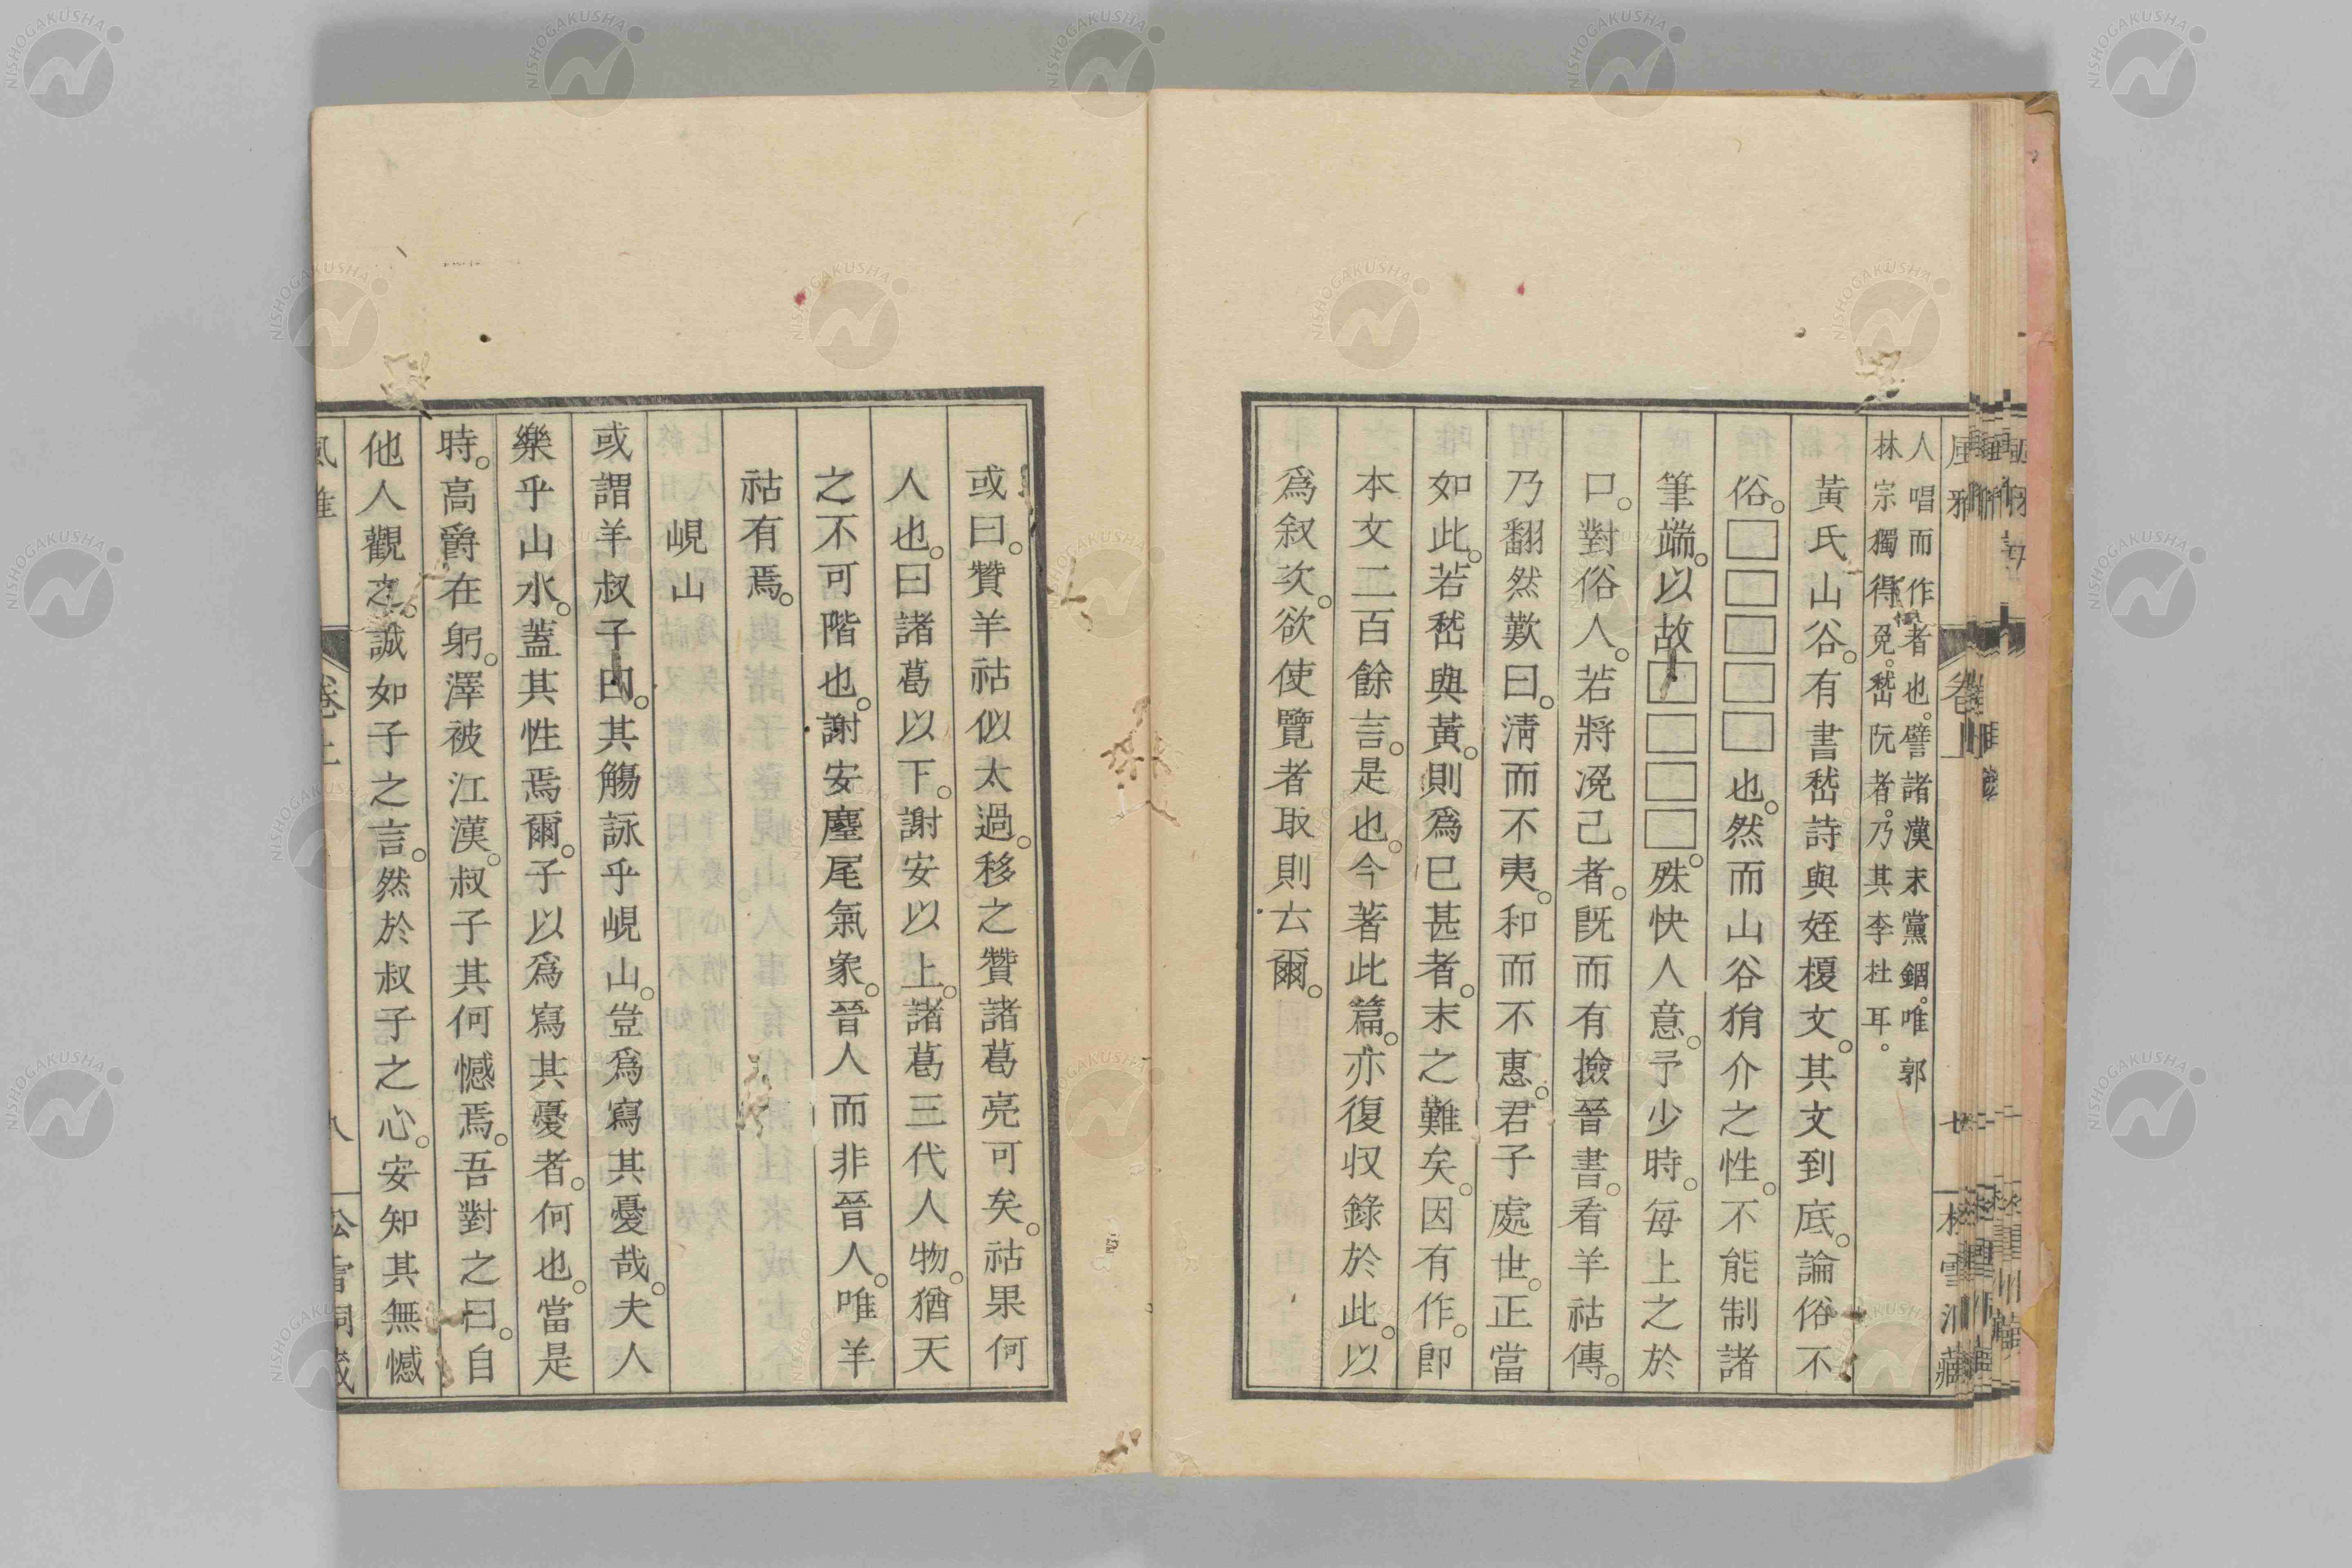 人唱而作者也。譬諸漢末黨錮。唯郭
林宗獨得免。嵇阮者。乃其李杜耳。
黃氏山谷。有書嵇詩與姪榎文。其文到底。論俗不
俗。□□□□□也。然而山谷狷介之性。不能制諸
筆端。以故□□□□。殊快人意。予少時。每上之於
口。對俗人。若將浼己者。既而有撿晉書。看羊祜傳。
乃翻然歎曰。淸而不夷。和而不惠。君子處世。正當
如此。若嵇與黃。則爲已甚者。末之難矣。因有作。卽
本文二百餘言。是也。今著此篇。亦復収錄於此。以
爲叙次。欲使覽者取則云爾。
或曰。贊羊祜似太過。移之贊諸葛亮可矣。祜果何
人也。曰諸葛以下。謝安以上。諸葛三代人物。猶天
之不可階也。謝安麈尾氣象。晉人而非晉人。唯羊
祜有焉。
峴山
或謂羊叔子曰。其觴詠乎峴山。豈爲寫其憂哉。夫人
樂乎山水。蓋其性焉爾。子以爲寫其憂者。何也。當是
時。高爵在躬。澤被江漢。叔子其何憾焉。吾對之曰。自
他人觀之。誠如子之言。然於叔子之心。安知其無憾